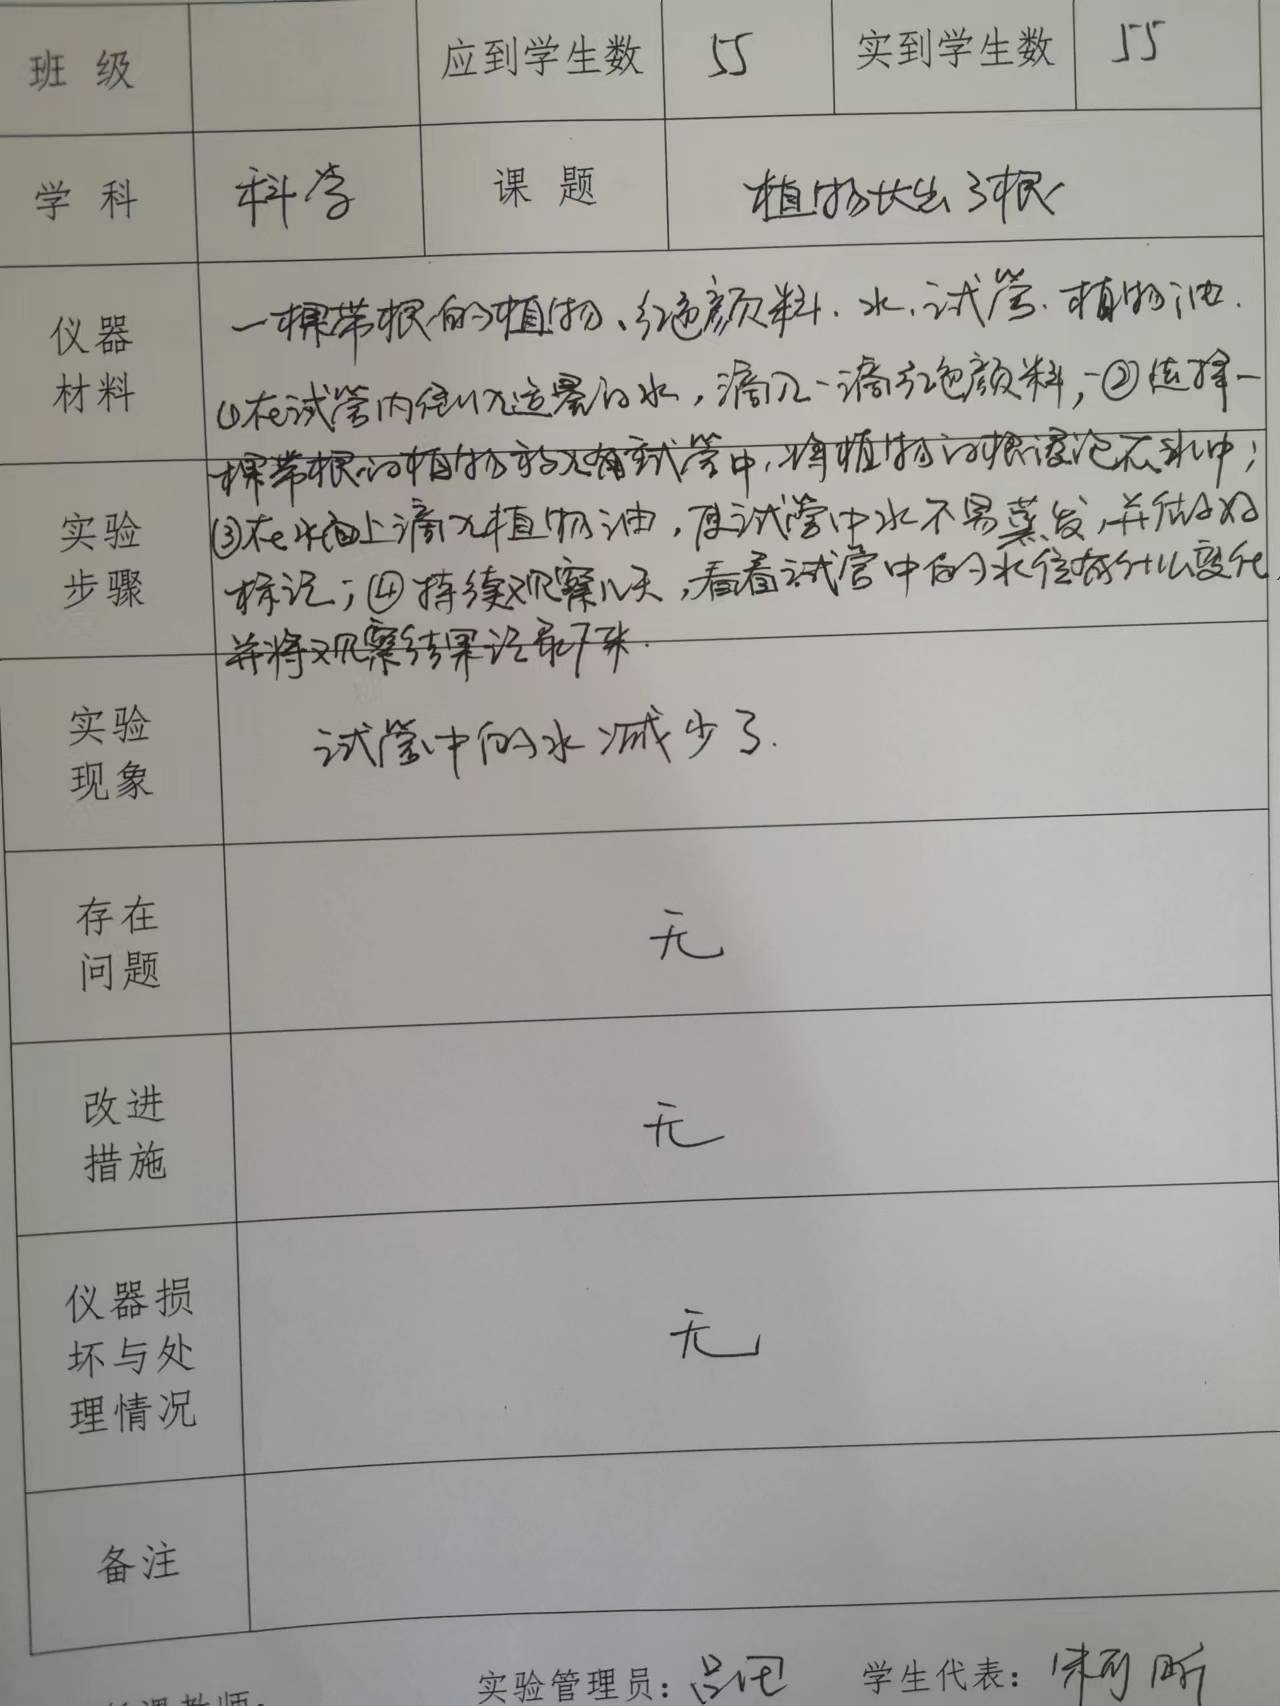 班级 应到学生数 55 实到学生数 55
学科 科学 课题 植物长出了根
仪器材料 一棵带根的植物、红色颜料、水、试管、植物油.
①在试管内倒入适量的水，滴入一滴红色颜料；②选择一
棵带根的植物放入有试管中，将植物的根浸泡在水中；
实验步骤 ③在水面上滴入植物油，使试管中水不易蒸发，并做好
标记；④持续观察几天，看看试管中的水位有什么变化，
并将观察结果记录下来.
实验现象 试管中的水减少了.
存在问题 无
改进措施 无
仪器损坏与处理情况 无
备注
授课教师: 实验管理员: 学生代表: